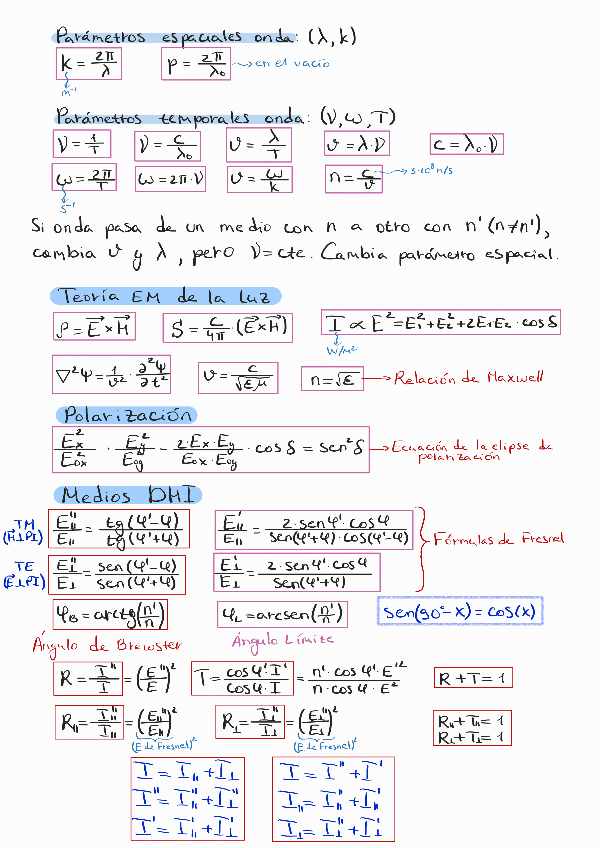 Parámetros espaciales onda: (λ, k)
k = 2π/λ   p = 2π/λ₀ → en el vacío
m⁻¹
Parámetros temporales onda: (ν, ω, T)
ν = 1/T   ν = c/λ₀   v = λ/T   v = λ·ν   c = λ₀·ν
ω = 2π/T   ω = 2π·ν   v = ω/k   n = c/v → 3·10⁸ m/s
s⁻¹
Si onda pasa de un medio con n a otro con n' (n≠n'),
cambia v y λ, pero ν = cte. Cambia parámetro espacial.
Teoría EM de la luz
P = E⃗ × H⃗   S = c/4π · (E⃗×H⃗)   I ∝ E² = E₁² + E₂² + 2E₁E₂ · cos δ
W/m²
∇²Ψ = 1/v² · ∂²Ψ/∂t²   v = c/√(εμ)   n = √ε → Relación de Maxwell
Polarización
Ex²/Eox² · Ey²/Eoy² − 2·Ex·Ey/(Eox·Eoy) · cos δ = sen² δ → Ecuación de la elipse de
polarización
Medios DHI
TM (H⊥PI)   E''∥/E∥ = tg(φ'−φ)/tg(φ'+φ)   E'∥/E∥ = 2·senφ'·cosφ/(sen(φ'+φ)·cos(φ'−φ))
Fórmulas de Fresnel
TE (E⊥PI)   E''⊥/E⊥ = sen(φ'−φ)/sen(φ'+φ)   E'⊥/E⊥ = 2·senφ'·cosφ/sen(φ'+φ)
φB = arctg(n'/n)   φL = arcsen(n'/n)   sen(90º−x) = cos(x)
Ángulo de Brewster   Ángulo Límite
R = I''/I = (E''/E)²   T = cosφ'·I'/(cosφ·I) = n'·cosφ'·E'²/(n·cosφ·E²)   R + T = 1
R∥ = I''∥/I∥ = (E''∥/E∥)²   R⊥ = I''⊥/I⊥ = (E''⊥/E⊥)²   R∥ + T∥ = 1
R⊥ + T⊥ = 1
(E de Fresnel)²   (E de Fresnel)²
I = I∥ + I⊥   I = I'' + I'
I'' = I''∥ + I''⊥   I∥ = I''∥ + I'∥
I' = I'∥ + I'⊥   I⊥ = I''⊥ + I'⊥